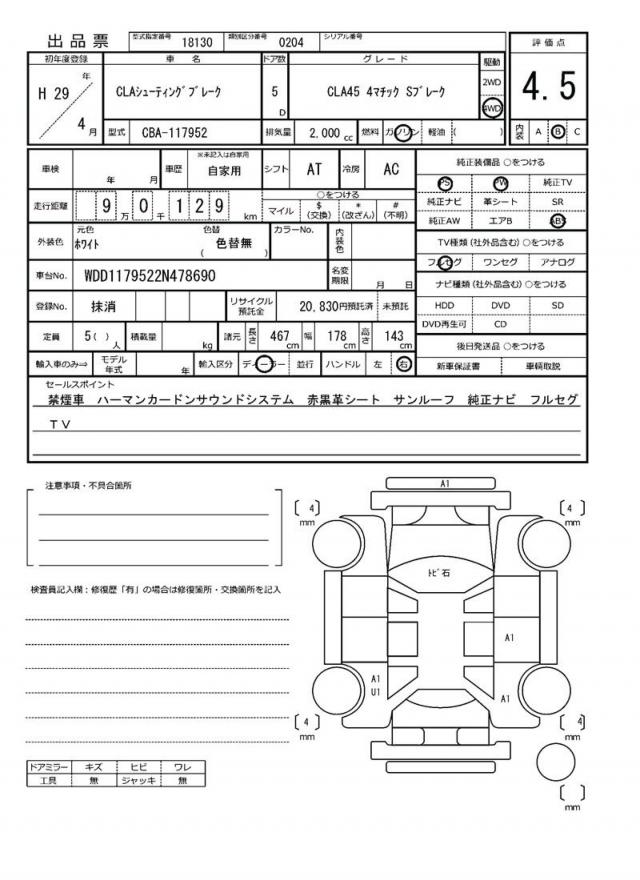 出品票
型式指定番号 18130 類別区分番号 0204 シリアル番号
評価点
4.5
初年度登録 車名 ドア数 グレード 駆動
H 29 年 4 月
CLAシューティングブレーク
5 D
CLA45 4マチック Sブレーク
2WD
4WD
型式 CBA-117952 排気量 2,000 cc 燃料 ガソリン 軽油 ( )
内装 A B C
車検 年 月 車歴 ※未記入は自家用 自家用 シフト AT 冷房 AC
走行距離 9 万 0 千 1 2 9 km
○をつける
マイル $ (交換) * (改ざん) # (不明)
外装色 元色 ホワイト 色替 ( 色替無 ) カラーNo. 内装色
車台No. WDD1179522N478690 名変期限 月 日
登録No. 抹消 リサイクル預託金 20,830円預託済 未預託
定員 5( ) 人 積載量 kg 諸元 長さ 467 cm 幅 178 cm 高さ 143 cm
輸入車のみ⇒ モデル年式 年 輸入区分 ディーラー 並行 ハンドル 左 右
純正装備品 ○をつける
PS PW 純正TV
純正ナビ 革シート SR
純正AW エアB ABS
TV種類(社外品含む)○をつける
フルセグ ワンセグ アナログ
ナビ種類(社外品含む)○をつける
HDD DVD SD
DVD再生可 CD
後日発送品 ○をつける
新車保証書 車輌取説
セールスポイント
禁煙車 ハーマンカードンサウンドシステム 赤黒革シート サンルーフ 純正ナビ フルセグ
TV
注意事項・不具合箇所
検査員記入欄:修復歴「有」の場合は修復箇所・交換箇所を記入
ドアミラー キズ ヒビ ワレ
工具 無 ジャッキ 無
A1
[ 4 ] mm
[ 4 ] mm
トビ石
A1
A1
U1
A1
[ 4 ] mm
[ 4 ] mm
[ ] mm